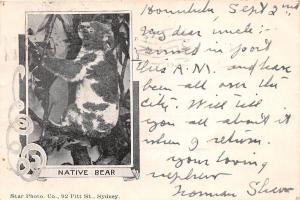 Honolulu Sept 2nd
My dear uncle:-
arrived in port
this A.M. and have
been all over the
city. Will tell
you all about it
when I return.
your loving
nephew
Norman Shaw
NATIVE BEAR
Star Photo. Co., 92 Pitt St., Sydney.